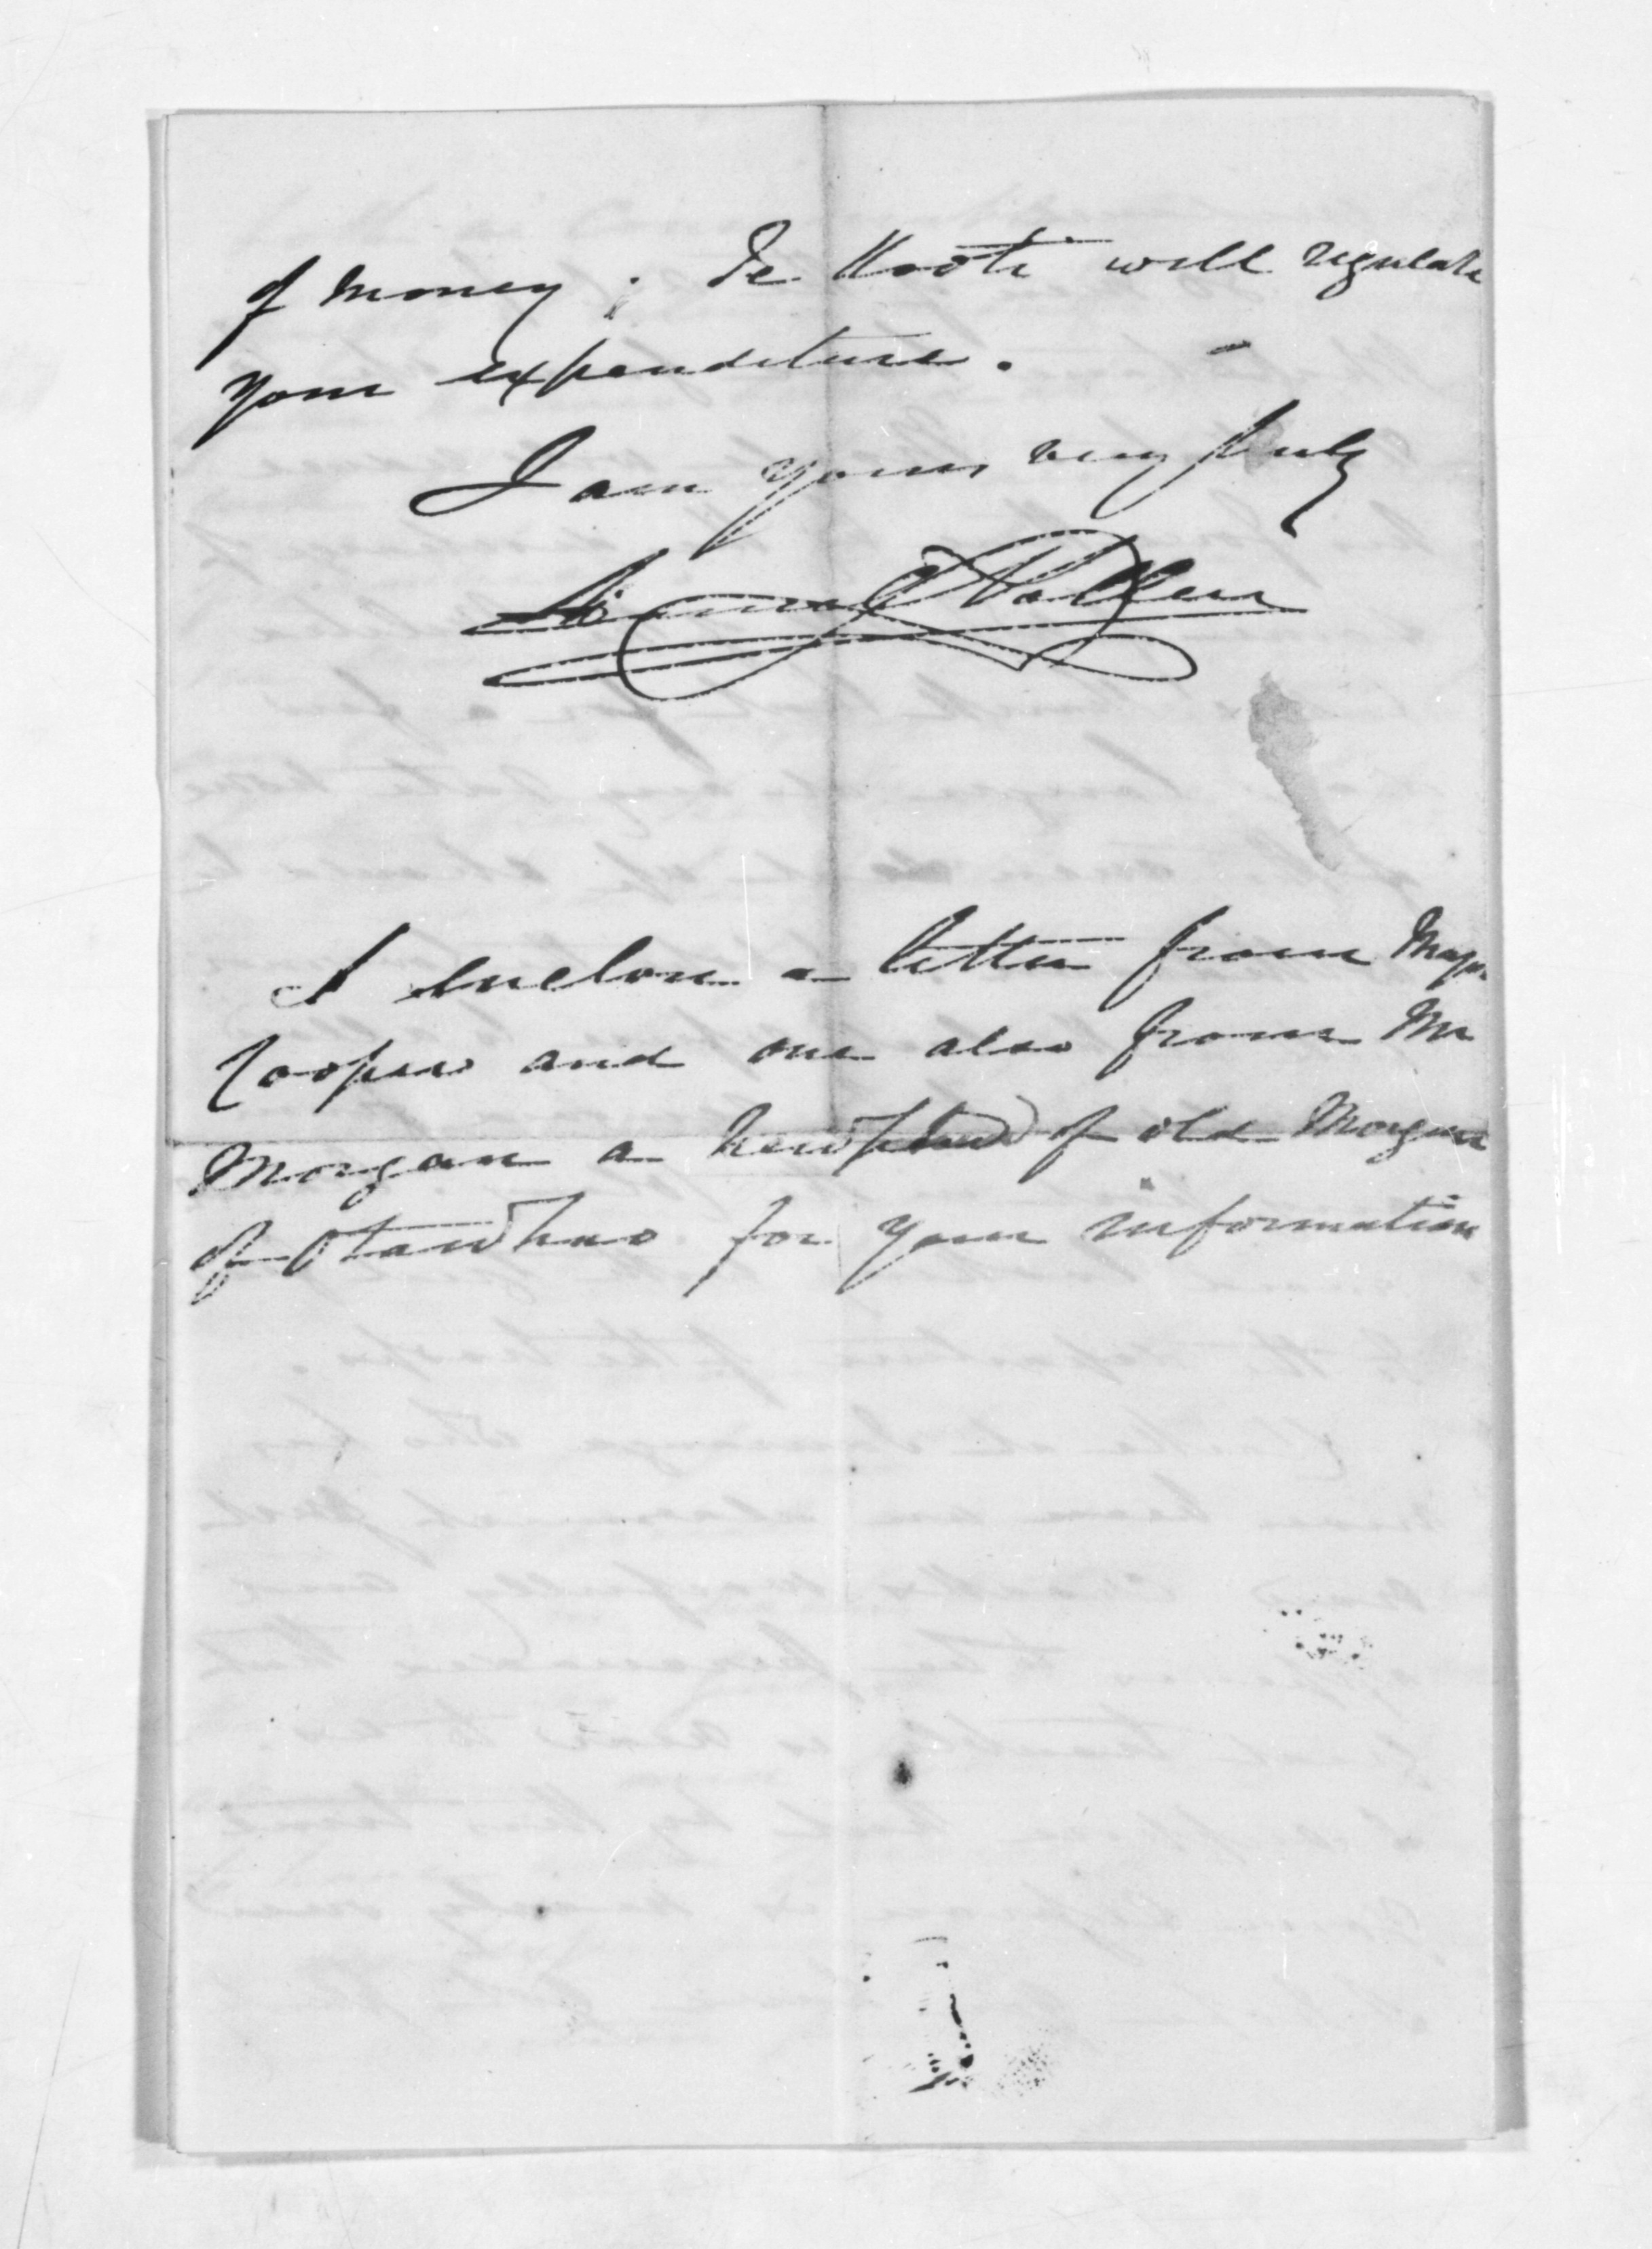 of money; Te Hooti will regulate
your expenditure.
I am yours very truly
I enclose a letter from Major
Cooper and one also from Mr
Morgan a nephew of old Morgan
of Otawhao for your information